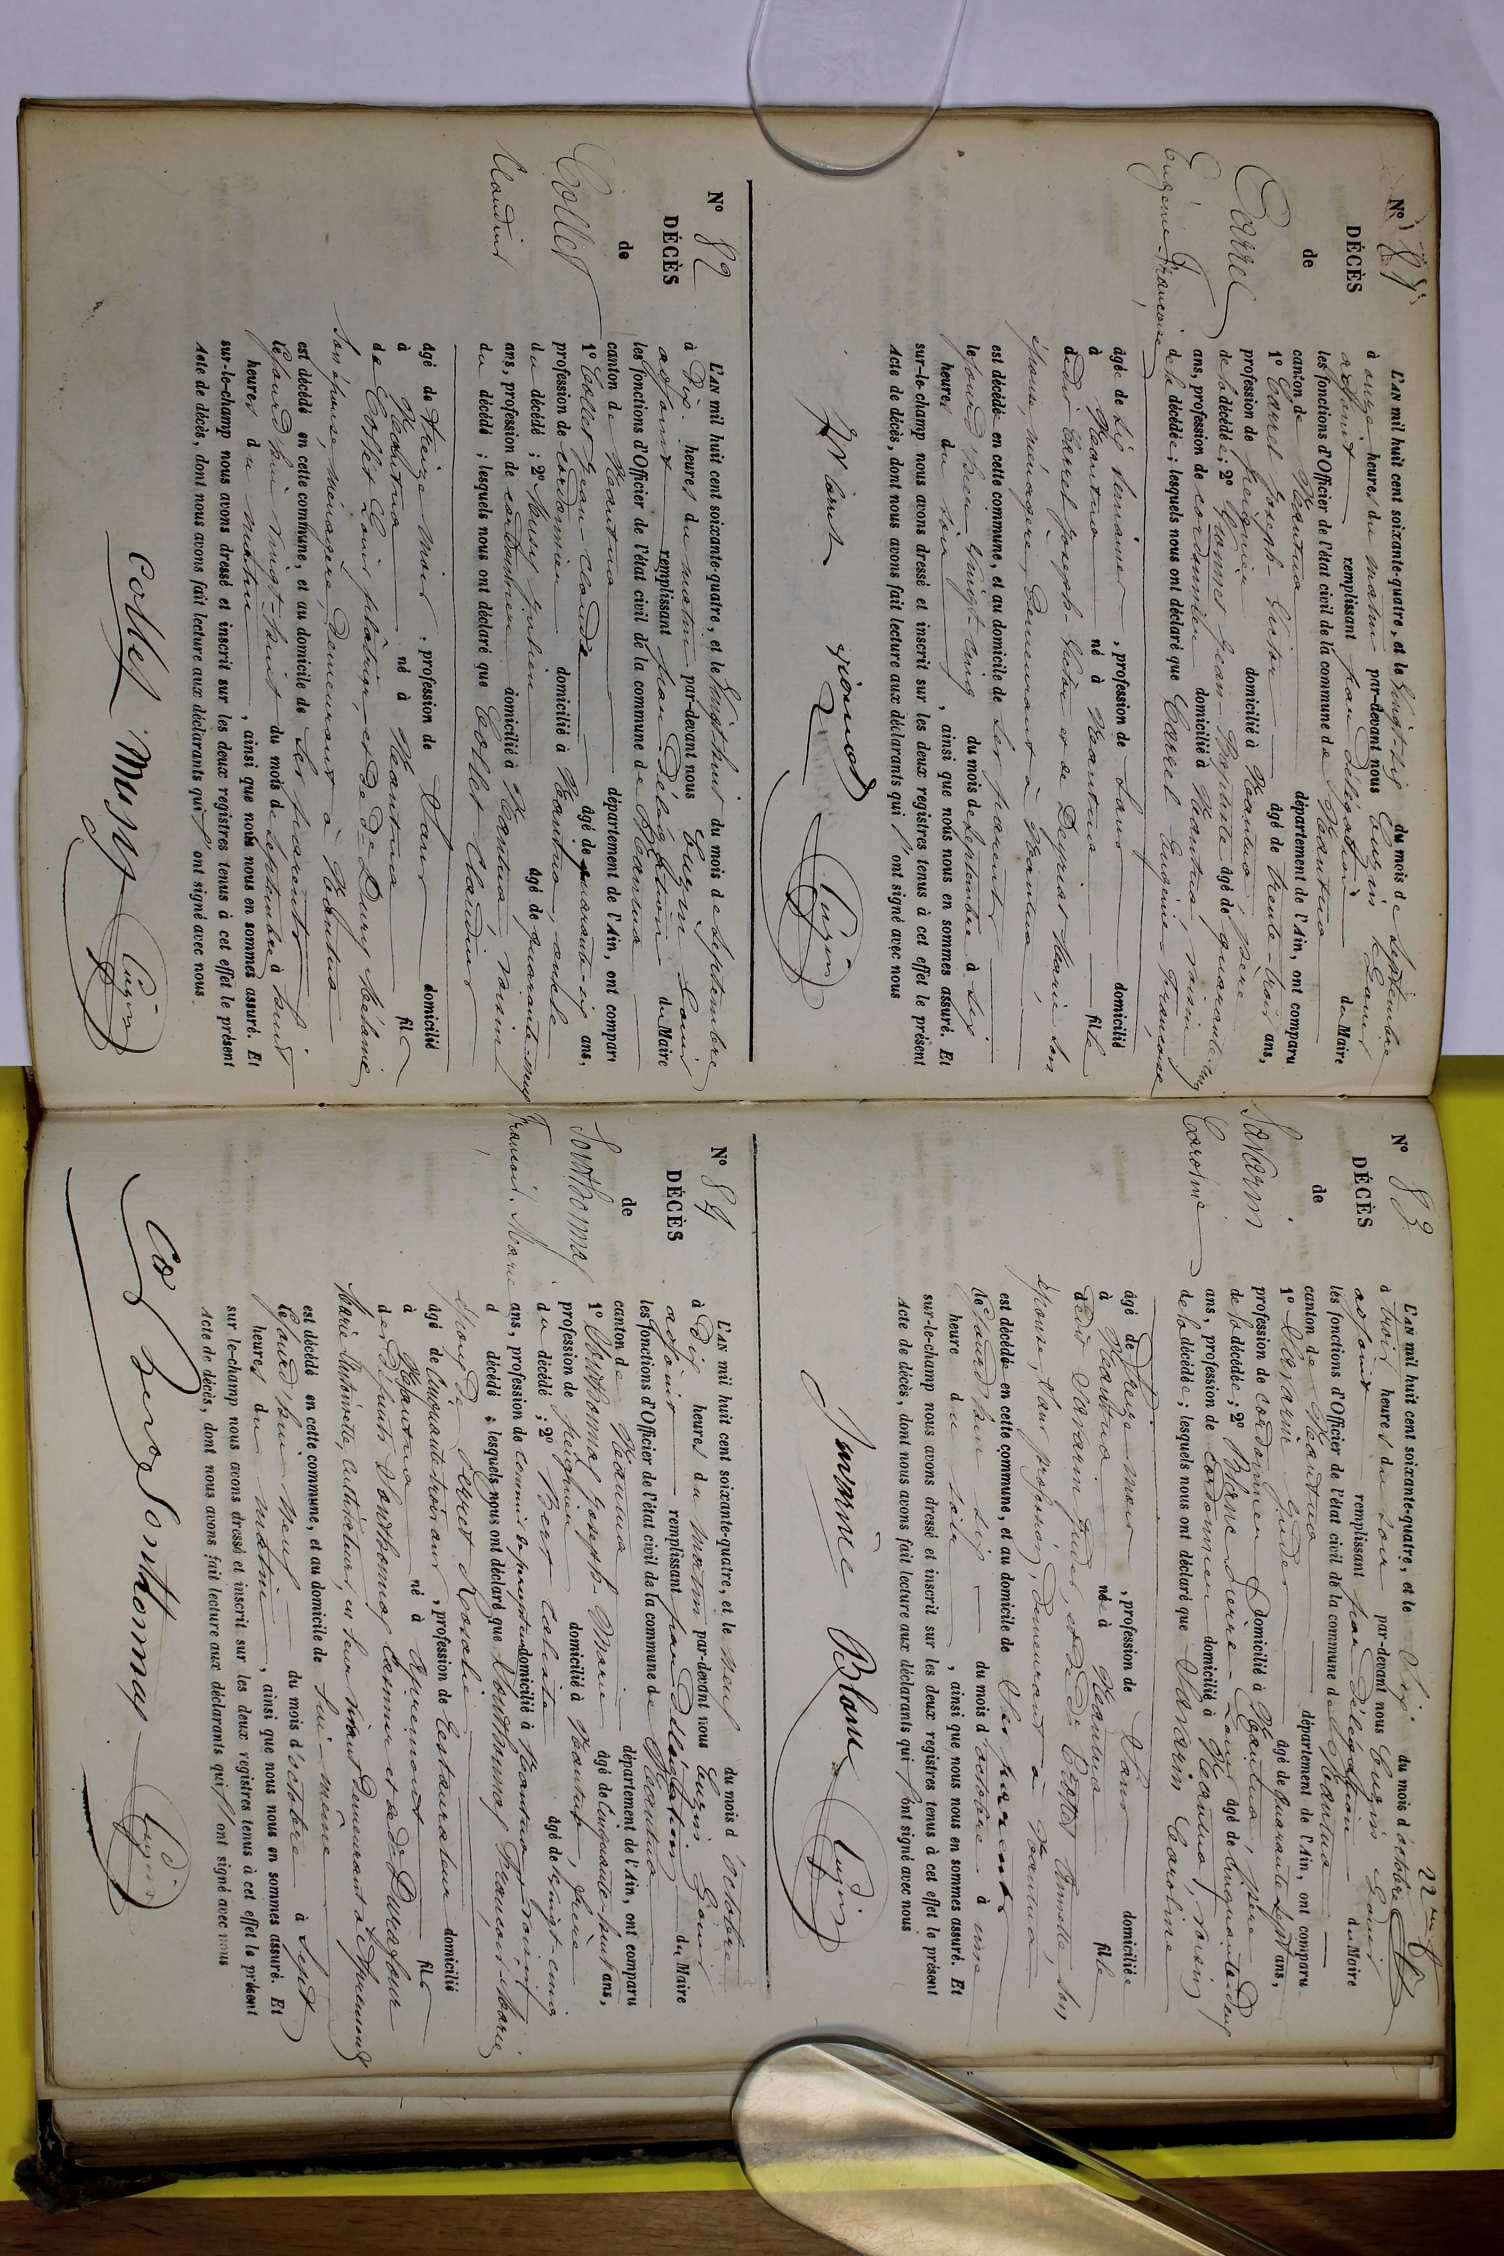 N° 81
DÉCÈS
de
Carrel
Eugénie Françoise
L'AN mil huit cent soixante-quatre, et le vingt-six du mois de Septembre
à onze heures du matin par-devant nous Cugin Louis
adjoint remplissant par délégation du Maire
les fonctions d'Officier de l'état civil de la commune de Nantua
canton de Nantua département de l'Ain, ont comparu
1° Carrel Joseph Victor âgé de trente-trois ans,
profession de peignier domicilié à Nantua, père
de la décédée ; 2° Jean-Baptiste âgé de quarante-cinq
ans, profession de cordonnier domicilié à Nantua, voisin
de la décédée ; lesquels nous ont déclaré que Carrel Eugénie Françoise
âgée de six semaines, profession de sans domiciliée
à Nantua née à Nantua fille
de Carrel Joseph-Victor et de Marie son
épouse, ménagère, demeurant à Nantua,
est décédée en cette commune, et au domicile de ses parents
le jourd'hier vingt-cinq du mois de Septembre à six
heures du soir, ainsi que nous nous en sommes assuré. Et
sur-le-champ nous avons dressé et inscrit sur les deux registres tenus à cet effet le présent
Acte de décès, dont nous avons fait lecture aux déclarants qui ont signé avec nous
Cugin
N° 82
DÉCÈS
de
Collet
Claudius
L'AN mil huit cent soixante-quatre, et le vingt-huit du mois de Septembre
à dix heures du matin par-devant nous Cugin Louis
adjoint remplissant par délégation du Maire
les fonctions d'Officier de l'état civil de la commune de Nantua
canton de Nantua département de l'Ain, ont comparu
1° Collet Jean-Claude âgé de quarante-six ans,
profession de cordonnier domicilié à Nantua, oncle
du décédé ; 2° Musy Julien âgé de quarante-neuf
ans, profession de cordonnier domicilié à Nantua, voisin
du décédé ; lesquels nous ont déclaré que Collet Claudius
âgé de treize mois, profession de sans domicilié
à Nantua né à Nantua fils
de Collet Louis plâtrier, et de Dury Mélanie
son épouse, ménagère, demeurant à Nantua
est décédé en cette commune, et au domicile de ses parents
le jourd'hui vingt-huit du mois de Septembre à huit
heures du matin, ainsi que nous nous en sommes assuré. Et
sur-le-champ nous avons dressé et inscrit sur les deux registres tenus à cet effet le présent
Acte de décès, dont nous avons fait lecture aux déclarants qui ont signé avec nous
Collet Musy Cugin
N° 83
DÉCÈS
de
Savarin
Caroline
L'AN mil huit cent soixante-quatre, et le six du mois d'octobre
à trois heures du soir par-devant nous Cugin Louis
adjoint remplissant par délégation du Maire
les fonctions d'Officier de l'état civil de la commune de Nantua
canton de Nantua département de l'Ain, ont comparu
1° Savarin âgé de quarante-sept ans,
profession de cordonnier domicilié à Nantua, père
de la décédée ; 2° Blanc Pierre-Louis âgé de cinquante-deux
ans, profession de cordonnier domicilié à Nantua, voisin
de la décédée ; lesquels nous ont déclaré que Savarin Caroline
âgée de treize mois, profession de sans domiciliée
à Nantua née à Nantua fille
de Savarin et de Annette, son
épouse, sans profession, demeurant à Nantua
est décédée en cette commune, et au domicile de ses parents
le jourd'hui six du mois d'octobre à une
heure du soir, ainsi que nous nous en sommes assuré. Et
sur-le-champ nous avons dressé et inscrit sur les deux registres tenus à cet effet le présent
Acte de décès, dont nous avons fait lecture aux déclarants qui ont signé avec nous
Blanc Cugin
N° 84
DÉCÈS
de
Sonthonnax
François Marie
L'AN mil huit cent soixante-quatre, et le neuf du mois d'octobre
à dix heures du matin par-devant nous Cugin Louis
adjoint remplissant par délégation du Maire
les fonctions d'Officier de l'état civil de la commune de Nantua
canton de Nantua département de l'Ain, ont comparu
1° Sonthonnax Joseph-Marie âgé de cinquante-huit ans,
profession de peignier domicilié à Nantua, frère
du décédé ; 2° Célestin âgé de vingt-cinq
ans, profession de commis domicilié à Nantua, voisin
d décédé ; lesquels nous ont déclaré que Sonthonnax François-Marie
époux de Rosalie
âgé de cinquante-trois ans, profession de Restaurateur domicilié
à Nantua né à Apremont fils
de défunts Sonthonnax et de Durafour
Marie Antoinette, cultivateurs, en leur vivant demeurant à Apremont
est décédé en cette commune, et au domicile de lui-même
le jourd'hui neuf du mois d'octobre à sept
heures du matin, ainsi que nous nous en sommes assuré. Et
sur-le-champ nous avons dressé et inscrit sur les deux registres tenus à cet effet le présent
Acte de décès, dont nous avons fait lecture aux déclarants qui ont signé avec nous
Sonthonnax Cugin